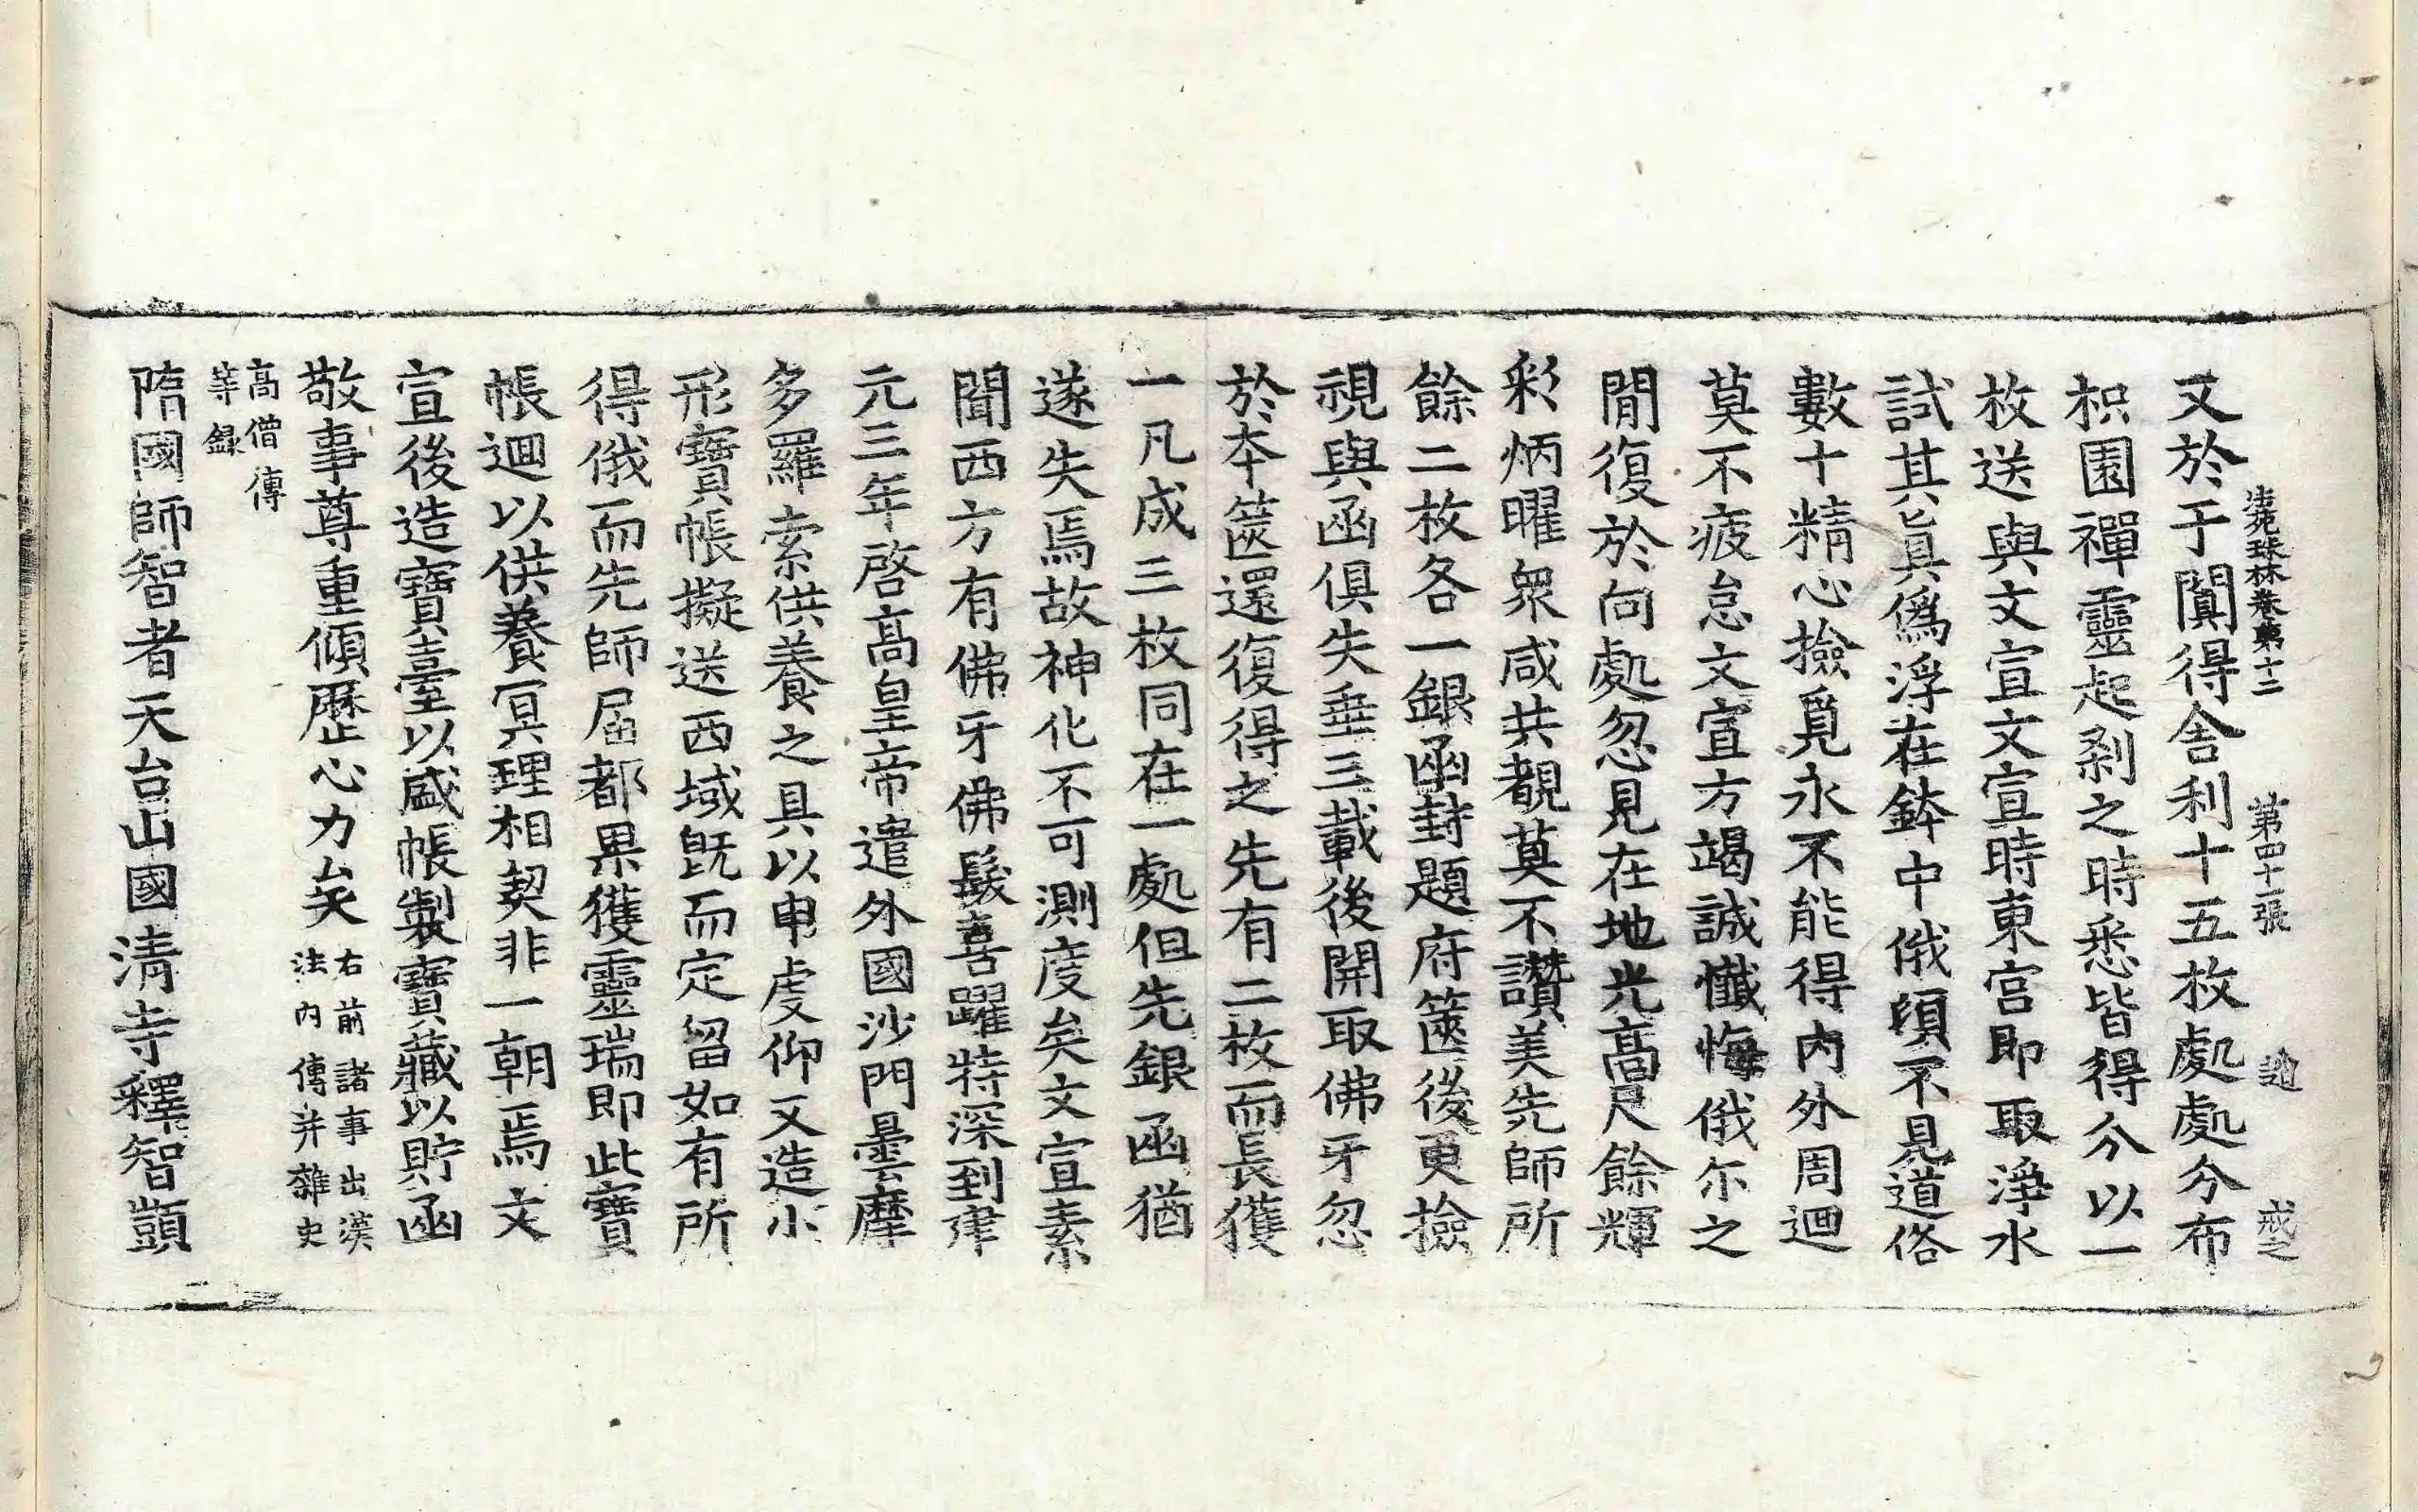 法苑珠林卷第十二 第四十一張 迪 戒之
又於于闐得舍利十五枚處處分布
枳園禪靈起刹之時悉皆得分以一
枚送與文宣文宣時東宮即取淨水
試其眞僞浮在鉢中俄頃不見道俗
數十精心撿覓永不能得內外周迴
莫不疲怠文宣方竭誠懺悔俄尓之
閒復於向處忽見在地光高尺餘輝
彩炳曜衆咸共覩莫不讚美先師所
餘二枚各一銀函封題府篋後更撿
視與函俱失垂三載後開取佛牙忽
於本篋還復得之先有二枚而長獲
一凡成三枚同在一處但先銀函猶
遂失焉故神化不可測度矣文宣素
聞西方有佛牙佛髮喜躍特深到建
元三年啓高皇帝遣外國沙門曇摩
多羅索供養之具以申虔仰又造小
形寶帳擬送西域旣而定留如有所
得俄而先師屆都果獲靈瑞即此寶
帳迴以供養冥理相契非一朝焉文
宣後造寶臺以盛帳製寶藏以貯函
敬事尊重傾歷心力矣右前諸事出漢
法內傳并雜史
高僧傳
等錄
隋國師智者天台山國淸寺釋智顗